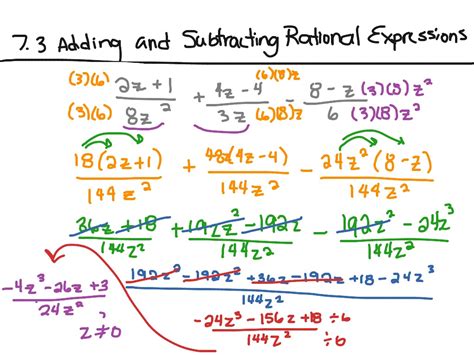 7.3 Adding and Subtracting Rational Expressions
(3)(6) 2z+1 / (3)(6) 8z² + 4z-4 (6)(8)z / 3z (6)(8)z - 8-z (3)(8)z² / 6 (3)(8)z²
18(2z+1) / 144z² + 48z(4z-4) / 144z² - 24z²(8-z) / 144z²
36z+18 / 144z² + 192z²-192z / 144z² - 192z²-24z³ / 144z²
192z²-192z²+36z-192z+18-24z³ / 144z²
-24z³-156z+18 ÷6 / 144z² ÷6
-4z³-26z+3 / 24z²,
z≠0